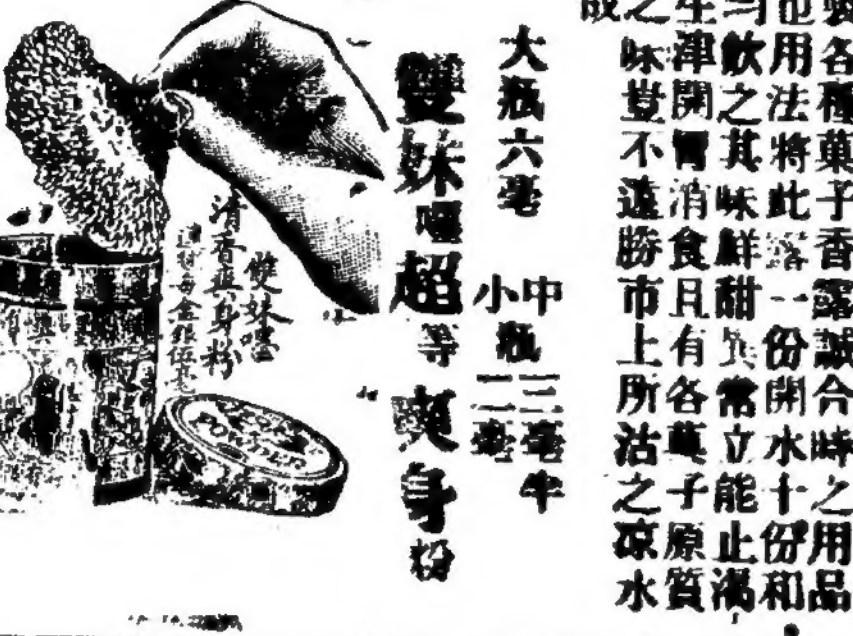 各種菓子香露誠合時之用品
也用法將此露一份開水十份和
均飲之其味鮮甜異常立能止渴
生津開胃消食且有各菓子原質
之味豈不遠勝市上所沽之凉水
大瓶六毫
中瓶三毫半
小瓶二毫
雙妹嚜超等爽身粉
雙妹嚜
清香爽身粉
每盒銀伍毫
POWDER